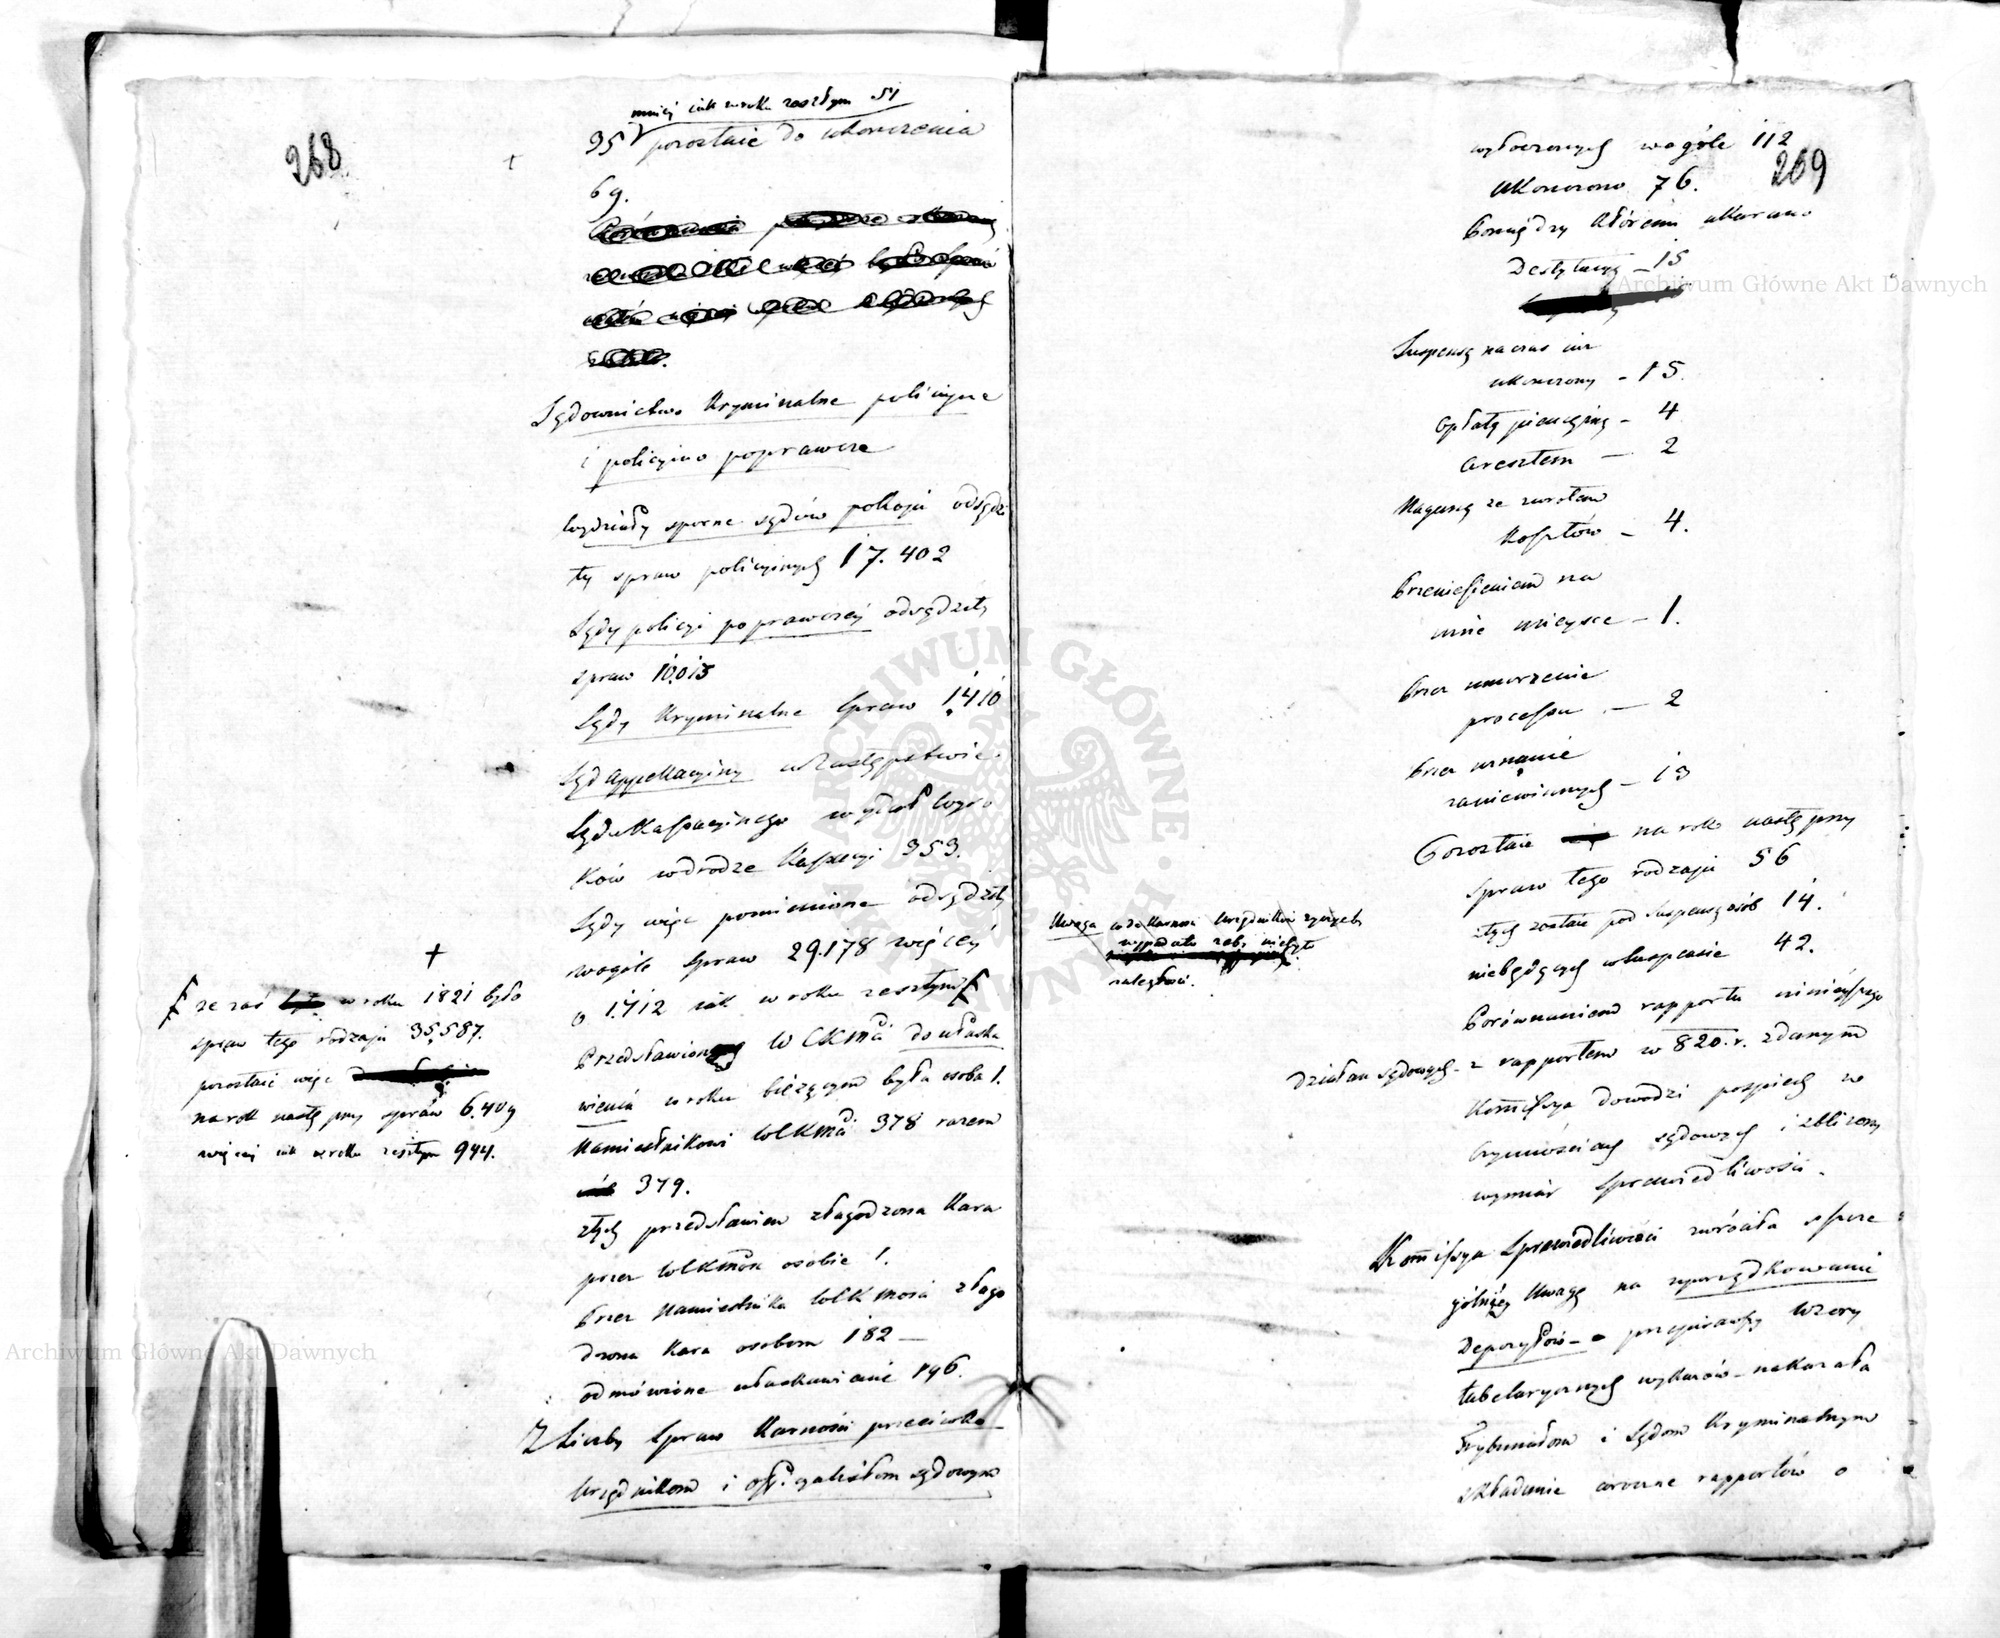 268
mniej iak w roku zeszłym 51
95 pozostaie do ukończenia
69.
Sądownictwo Kryminalne policyine
i policyino poprawcze
Wydziały sporne sądów pokoju odsądzi
ły spraw policyinych 17.402
Sądy policyi poprawczey odsądziły
spraw 10.013
Sądy Kryminalne Spraw 1.410
Sąd Appellacyiny w zastępstwie
Sądu Kassacyinego wydał wyro
ków w drodze Kassacyi 353.
Sądy więc pomienione odsądziły
wogóle Spraw 29.178 więcey
o 1.712 iak w roku zeszłym
Przedstawion WCKMci do ułaska
wienia w roku bieżącym była osoba 1.
Namiestnikowi WCKMci 378 razem
379.
z tych przedstawien złagodzona Kara
przez WCKMść osobie 1.
Przez Namiestnika WCKMości złago
dzona Kara osobom 182 —
odmówione ułaskawienie 196.
Z Liczby Spraw Karności przeciwko
Urzędnikom i officyalistom sądowym
+
że zaś w roku 1821 było
spraw tego rodzaju 35.587.
pozostaie więc
na rok następny spraw 6.409
więcey iak w roku zeszłym 944.
269
wytoczonych wogóle 112
ukończono 76.
Pomiędzy któremi ukarano
Destytucyą – 15
Suspensą na czas iuż
ukończony – 15.
Opłatą pieniężną – 4
Aresztem — 2
Naganą ze zwrotem
Kosztów – 4.
Przeniesieniem na
inne mieysce – 1.
Przez umorzenie
processu — 2
Przez uznanie
za niewinnych – 13
Pozostaie na rok następny
Spraw tego rodzaju 56
z tych zostaie pod Suspensą osób 14.
niebędących w suspensie 42.
Porównaniem rapportu ninieyszego
działań sądowych z rapportem w 820. r. zdanym
Kommissya dowodzi pospiech w
Czynnościach sądowych i zbliżony
wymiar Sprawiedliwości.
Uwaga co do Karności Urzędników
wypadało żeby niebyło
zaległości.
Kommissya Sprawiedliwości zwróciła szcze
gólniey Uwagę na uporządkowanie
Depozytów – przepisawszy Wzory
tabelarycznych wykazów – nakazała
Trybunałom i Sądom Kryminalnym
składanie coroczne rapportów o
Archiwum Główne Akt Dawnych
Archiwum Główne Akt Dawnych
ARCHIWUM GŁÓWNE AKT DAWNYCH